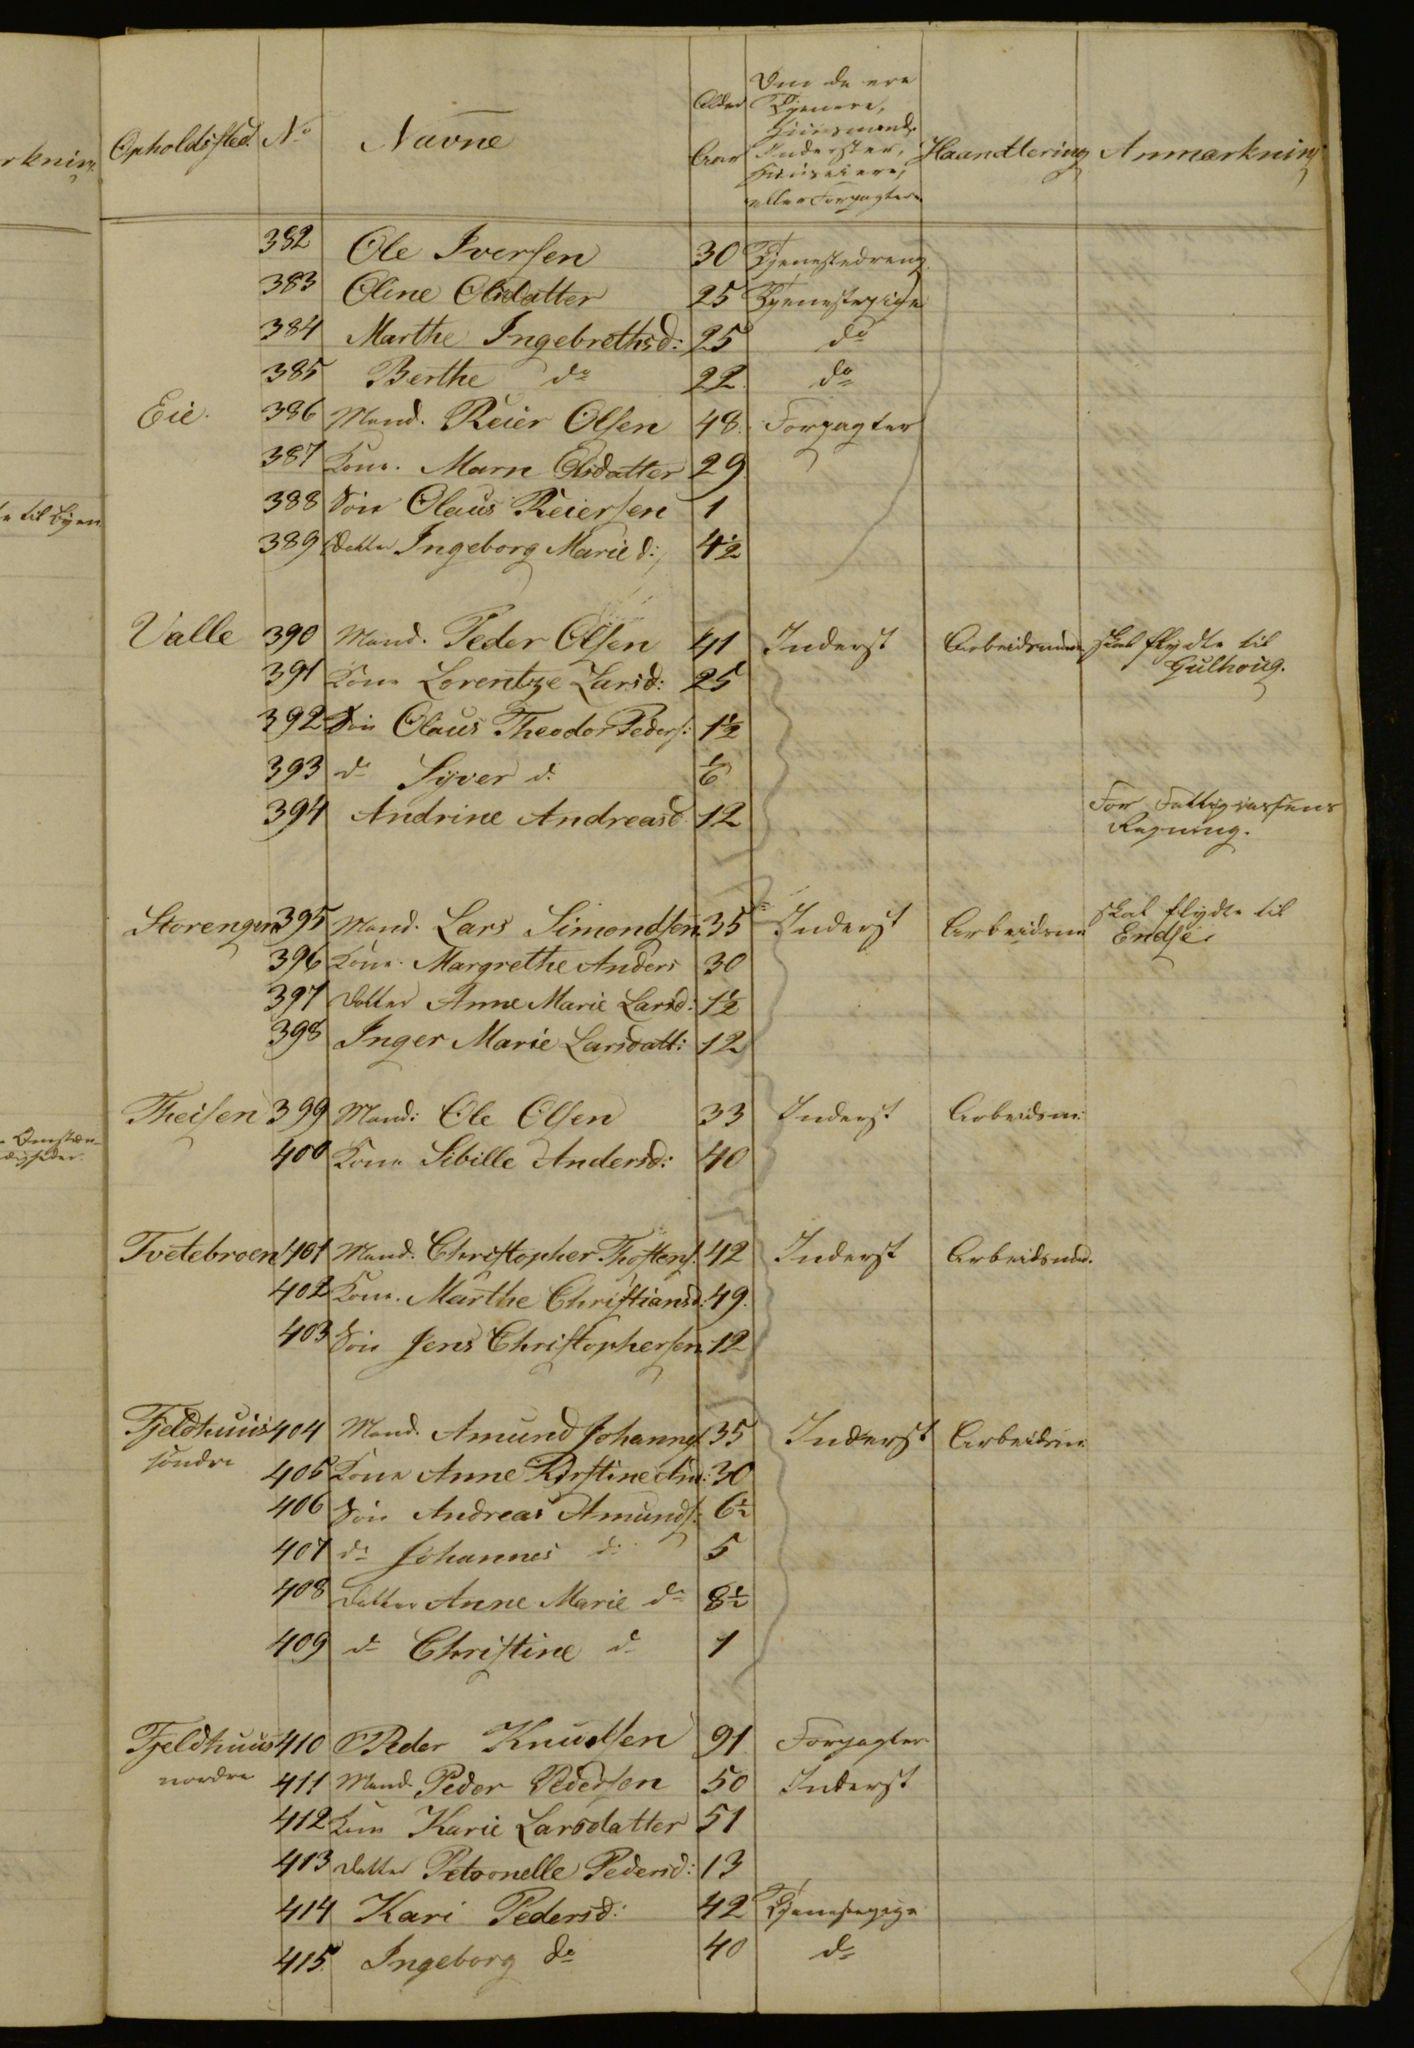 rkning.
Opholdssted. No Navne Alder Aar Om de ere Tjenere, Huusmænd, Inderster, Huuseiere, eller Forpagtere Haandtering Anmærkning
382 Ole Iversen 30 Tjenestedreng.
383 Oline Olsdatter 25 Tjenestepige
384 Marthe Ingebrethsd: 25 do
385 Berthe do 22. do
Eie. 386 Mand. Reier Olsen 48. Forpagter
387 Kone. Marn Olsdatter 29
te til Byen
388 Søn Olaus Reiersen 1
389 Datter Ingeborg Marie d: 4½
Valle 390 Mand. Peder Olsen 41 Inderst Arbeidsmand skal flydte til
Gulhoug.
391 Kone Lorentze Larsd: 25
392 Søn Olaus Theodor Peders: 1½
393 do Syver d. 1/6
394 Andrine Andreasd 12 For Fattigcassens
Regning.
Storengen 395 Mand. Lars Simondsen 35 Inderst Arbeidsm skal flydte til
Endsø.
396 Kone. Margrethe Anders 30
397 Datter Anne Marie Larsd: 1½
398 Inger Marie Larsdatt: 12
Theisen 399 Mand: Ole Olsen 33 Inderst Arbeidsm:
Omstæn-
digheder.
400 Kone Sibille Andersd: 40
Tvetebroen 401 Mand. Christopher Thostens. 42 Inderst Arbeidsmd.
402 Kone. Marthe Christiansd: 49.
403 Søn Jens Christophersen 12
Fjeldhuus 404 Mand. Amund Johannes 35 Inderst Arbeidsm
søndre
405 Kone Anne Kirstine And: 30
406 Søn Andreas Amunds: 6½
407 do Johannes do 5
408 Datter Anne Marie do 8½
409 do Christine do 1
Fjeldhuus 410 Peder Knudsen 91 Forpagter
nordre
411 Mand Peder Pedersen 50 Inderst
412 Kone Karie Larsdatter 51
413 Datter Petronelle Pedersd: 13
414 Kari Pedersd: 42 Tjenestepige
415 Ingeborg do 40 do